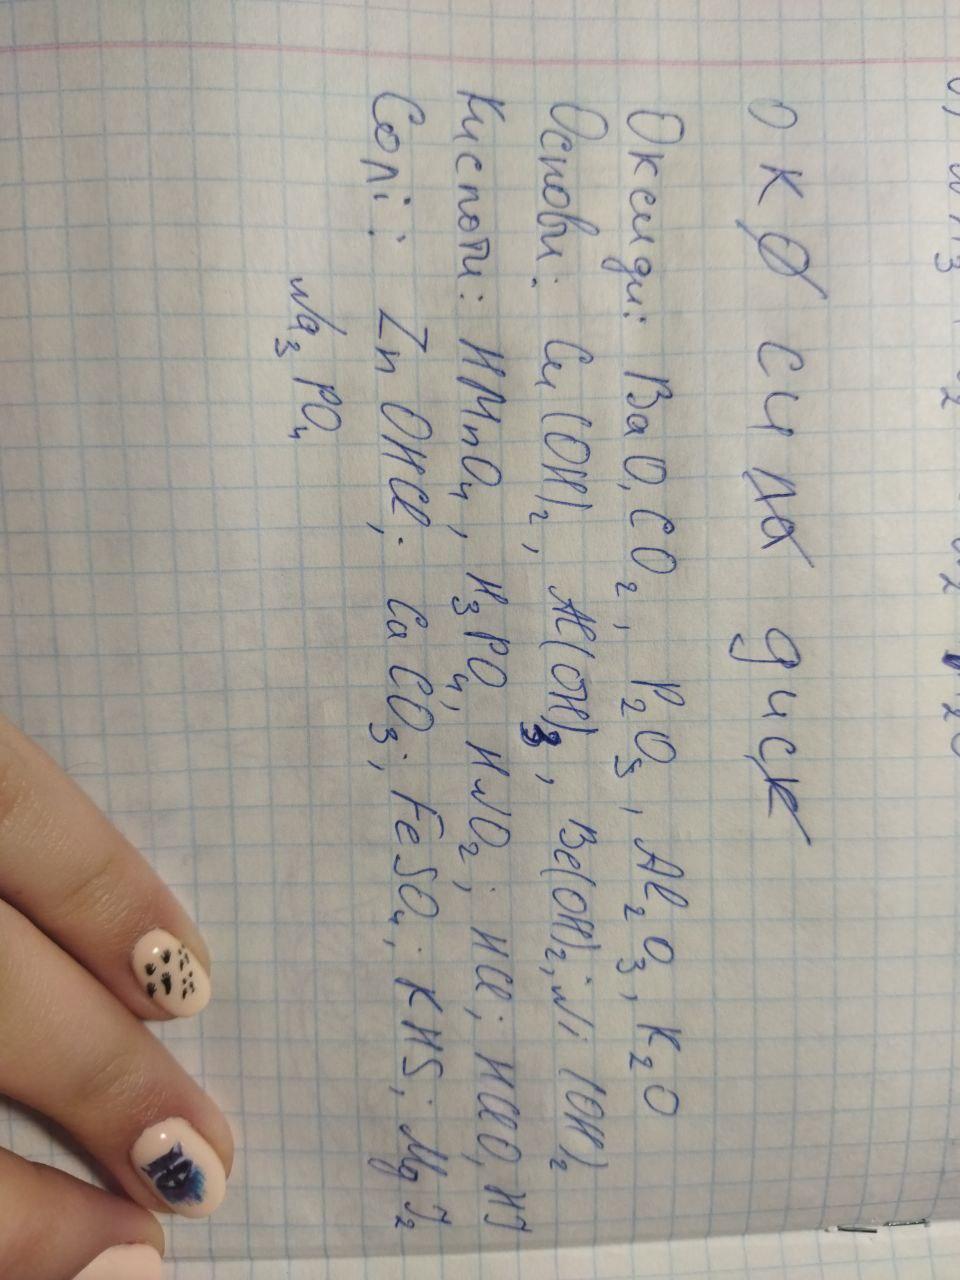 Оксиди: BaO, CO2, P2O5, Al2O3, K2O
Основи: Cu(OH)2, Al(OH)3, Be(OH)2; Ni(OH)2
Кислоти: HMnO4, H3PO4, HNO2; HCl; HClO, HJ
Солі: ZnOHCl; CaCO3; FeSO4; KHS; MgJ2
Na3PO4